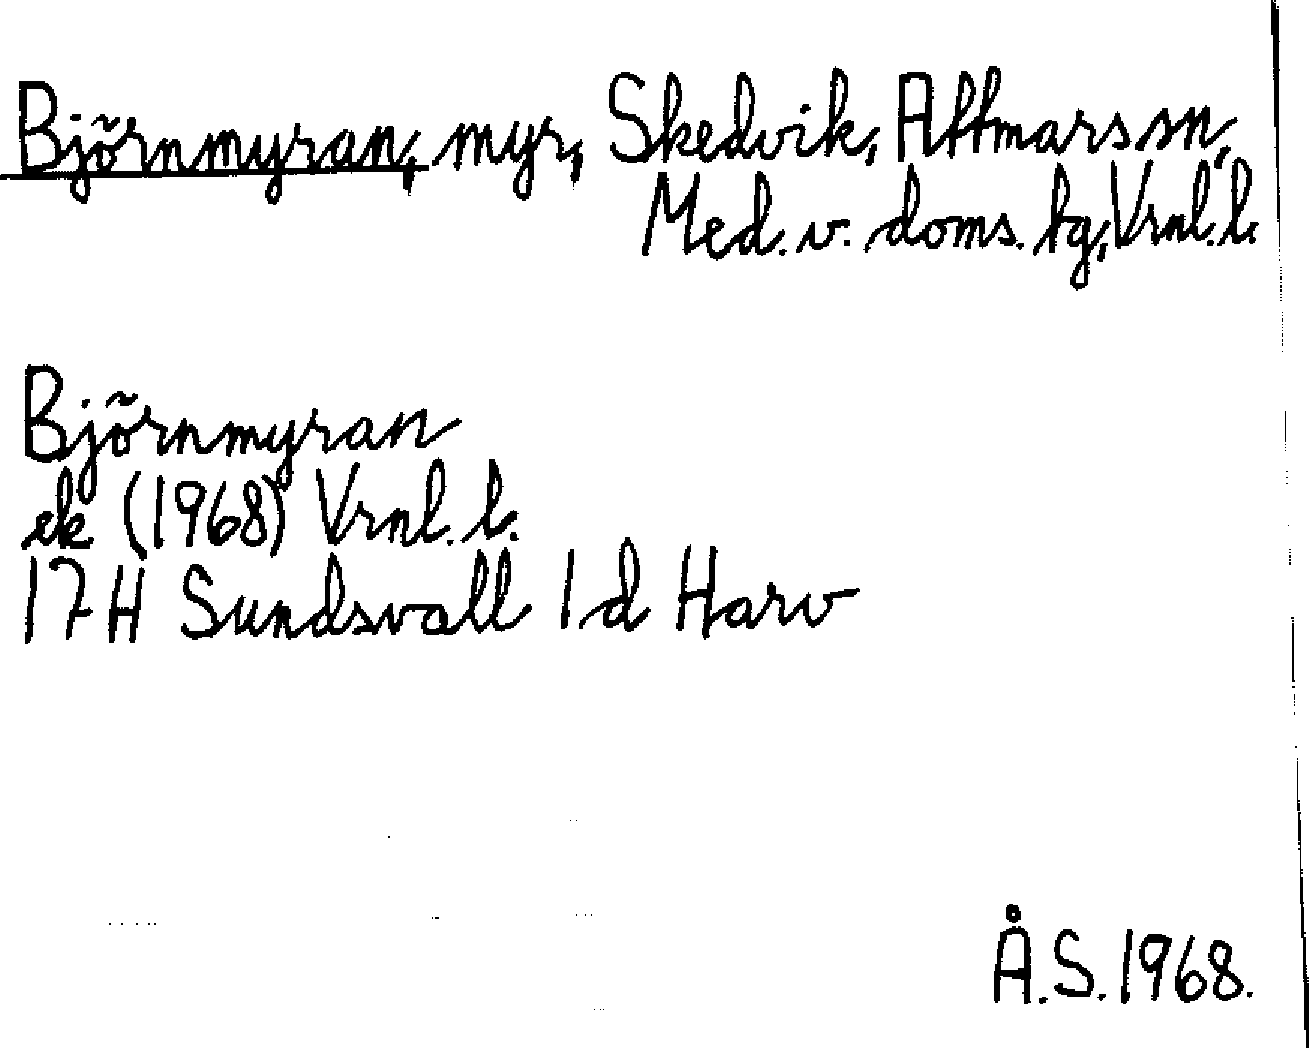 Björnmyran, myr, Skedvik, Attmars sn,
Med. v. doms. tg, Vrnl. l.
Björnmyran
ek (1968) Vrnl. l.
17H Sundsvall 1 d Harv
Å.S. 1968.